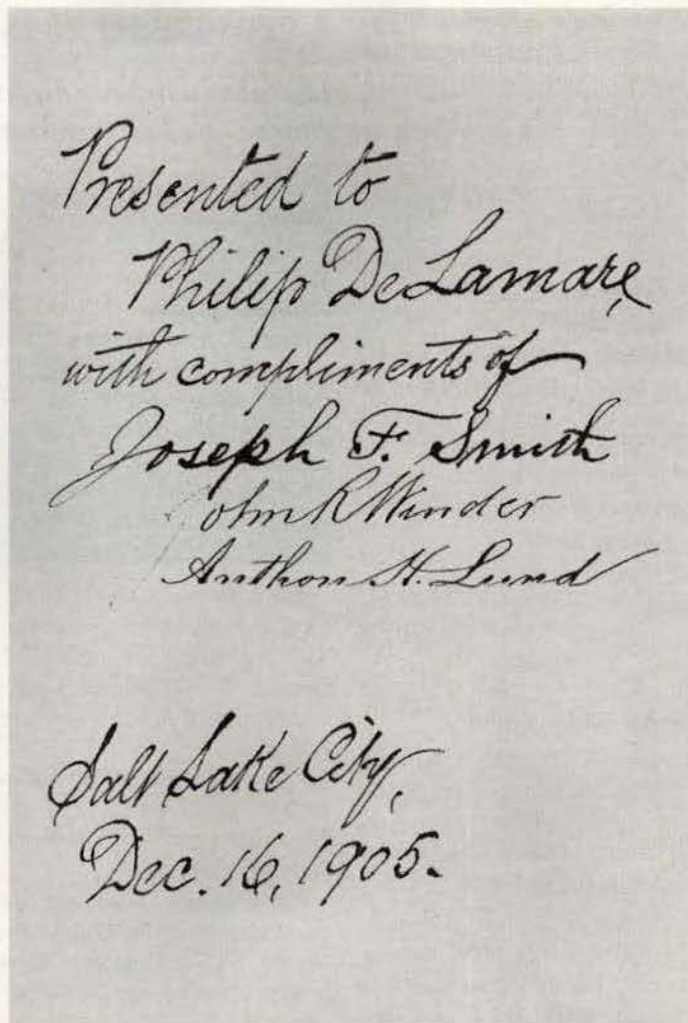 Presented to
Philip DeLamare,
with compliments of
Joseph F. Smith
John R Winder
Anthon H. Lund
Salt Lake City,
Dec. 16, 1905.